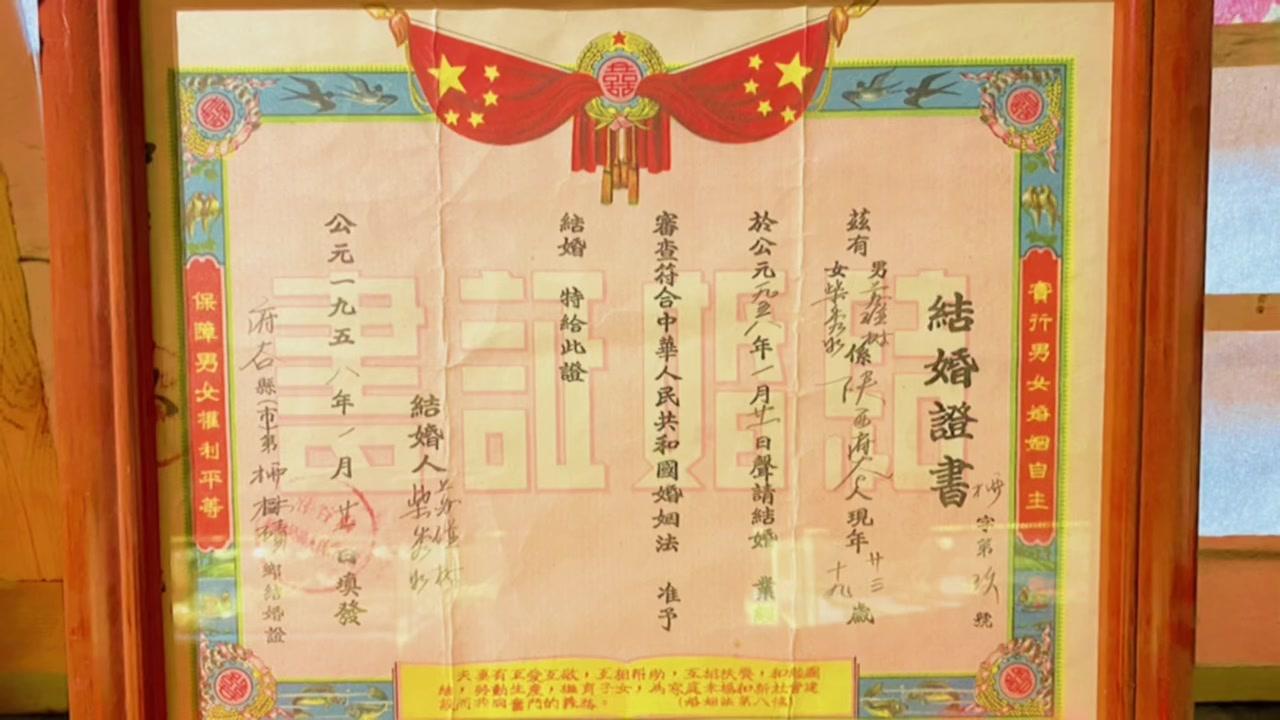 囍
結婚證書
字第玖號
茲有男
女柴
係陝西府谷人現年廿三
十九歲
於公元一九五八年一月廿一日聲請結婚 業經
審查符合中華人民共和國婚姻法 准予
結婚 特給此證
結婚人
柴
公元一九五八年一月廿一日填發
府谷縣(市)第
鄉結婚證
結婚証書
實行男女婚姻自主
保障男女權利平等
夫妻有互愛互敬,互相幫助,互相扶養,和睦團
結,勞動生產,撫育子女,為家庭幸福和新社會建
設而共同奮鬥的義務。 (婚姻法第八條)